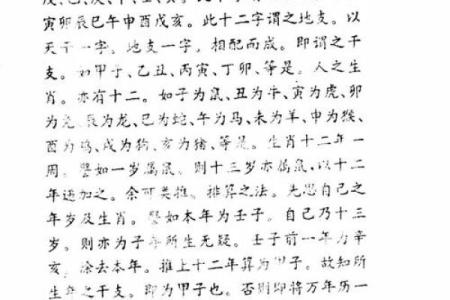 寅卯辰巳午申酉戊亥。此十二字謂之地支。以
天干一字。地支一字，相配而成。即謂之干
支。如甲子、乙丑、丙寅、丁卯、等是。人之生
肖。亦有十二。如子為鼠、丑為牛、寅為虎、卯
為兔、辰為龙、巳為蛇、午为马、未为羊、申为猴、
酉為鸡、戍為狗、亥為猪、等是。生肖十二年一
周。譬如一岁属鼠。则十三岁亦属鼠、以十二
年递加之。余可类推。推算之法。先思自己之
年岁及生肖。譬如本年为壬子。自己乃十三
岁。则亦为子年所生无疑。壬子前一年为辛
亥，除去本年。推上十二年算为甲子。故知所
生年之干支。即为甲子也。否则即将万年历一